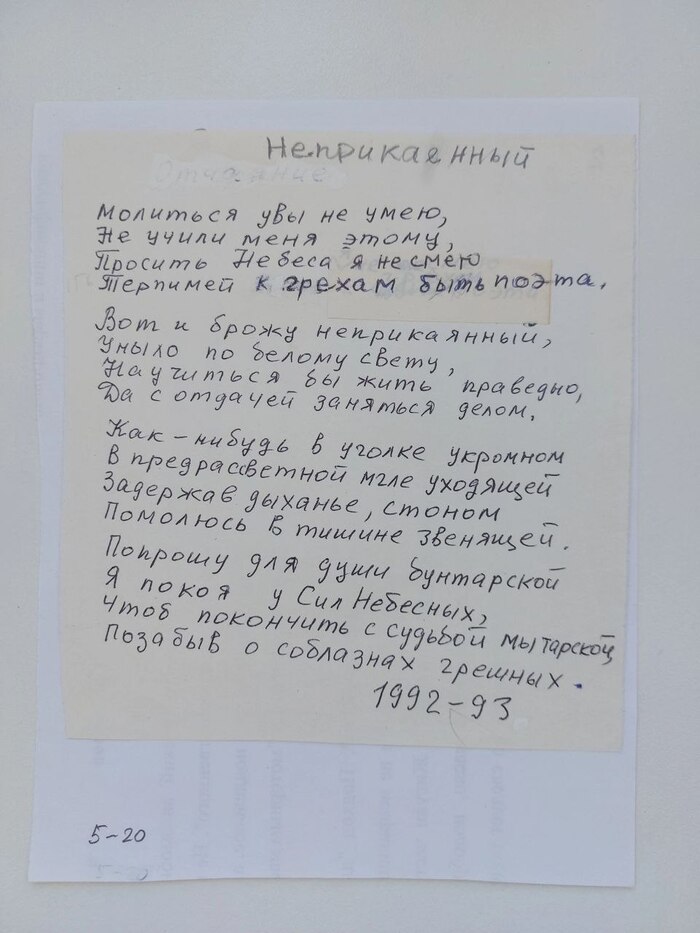 Неприкаенный
Отчаяние
Молиться увы не умею,
Не учили меня этому,
Просить Небеса я не смею
Терпимей к грехам быть поэта.
Вот и брожу неприкаянный,
Уныло по белому свету,
Научиться бы жить праведно,
Да с отдачей заняться делом.
Как-нибудь в уголке укромном
В предрассветной мгле уходящей
Задержав дыханье, стоном
Помолюсь в тишине звенящей.
Попрошу для души бунтарской
Я покоя у Сил Небесных,
Чтоб покончить с судьбой мытарской
Позабыв о соблазнах грешных.
1992-93
5-20